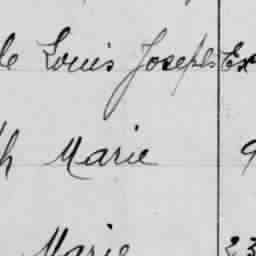 le Louis Joseph Ex
h Marie 9
Marie 23